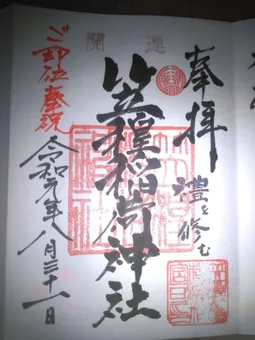 奉拝
禮を修む
開運
笠䅣稲荷神社
ご即位奉祝
令和元年八月三十一日